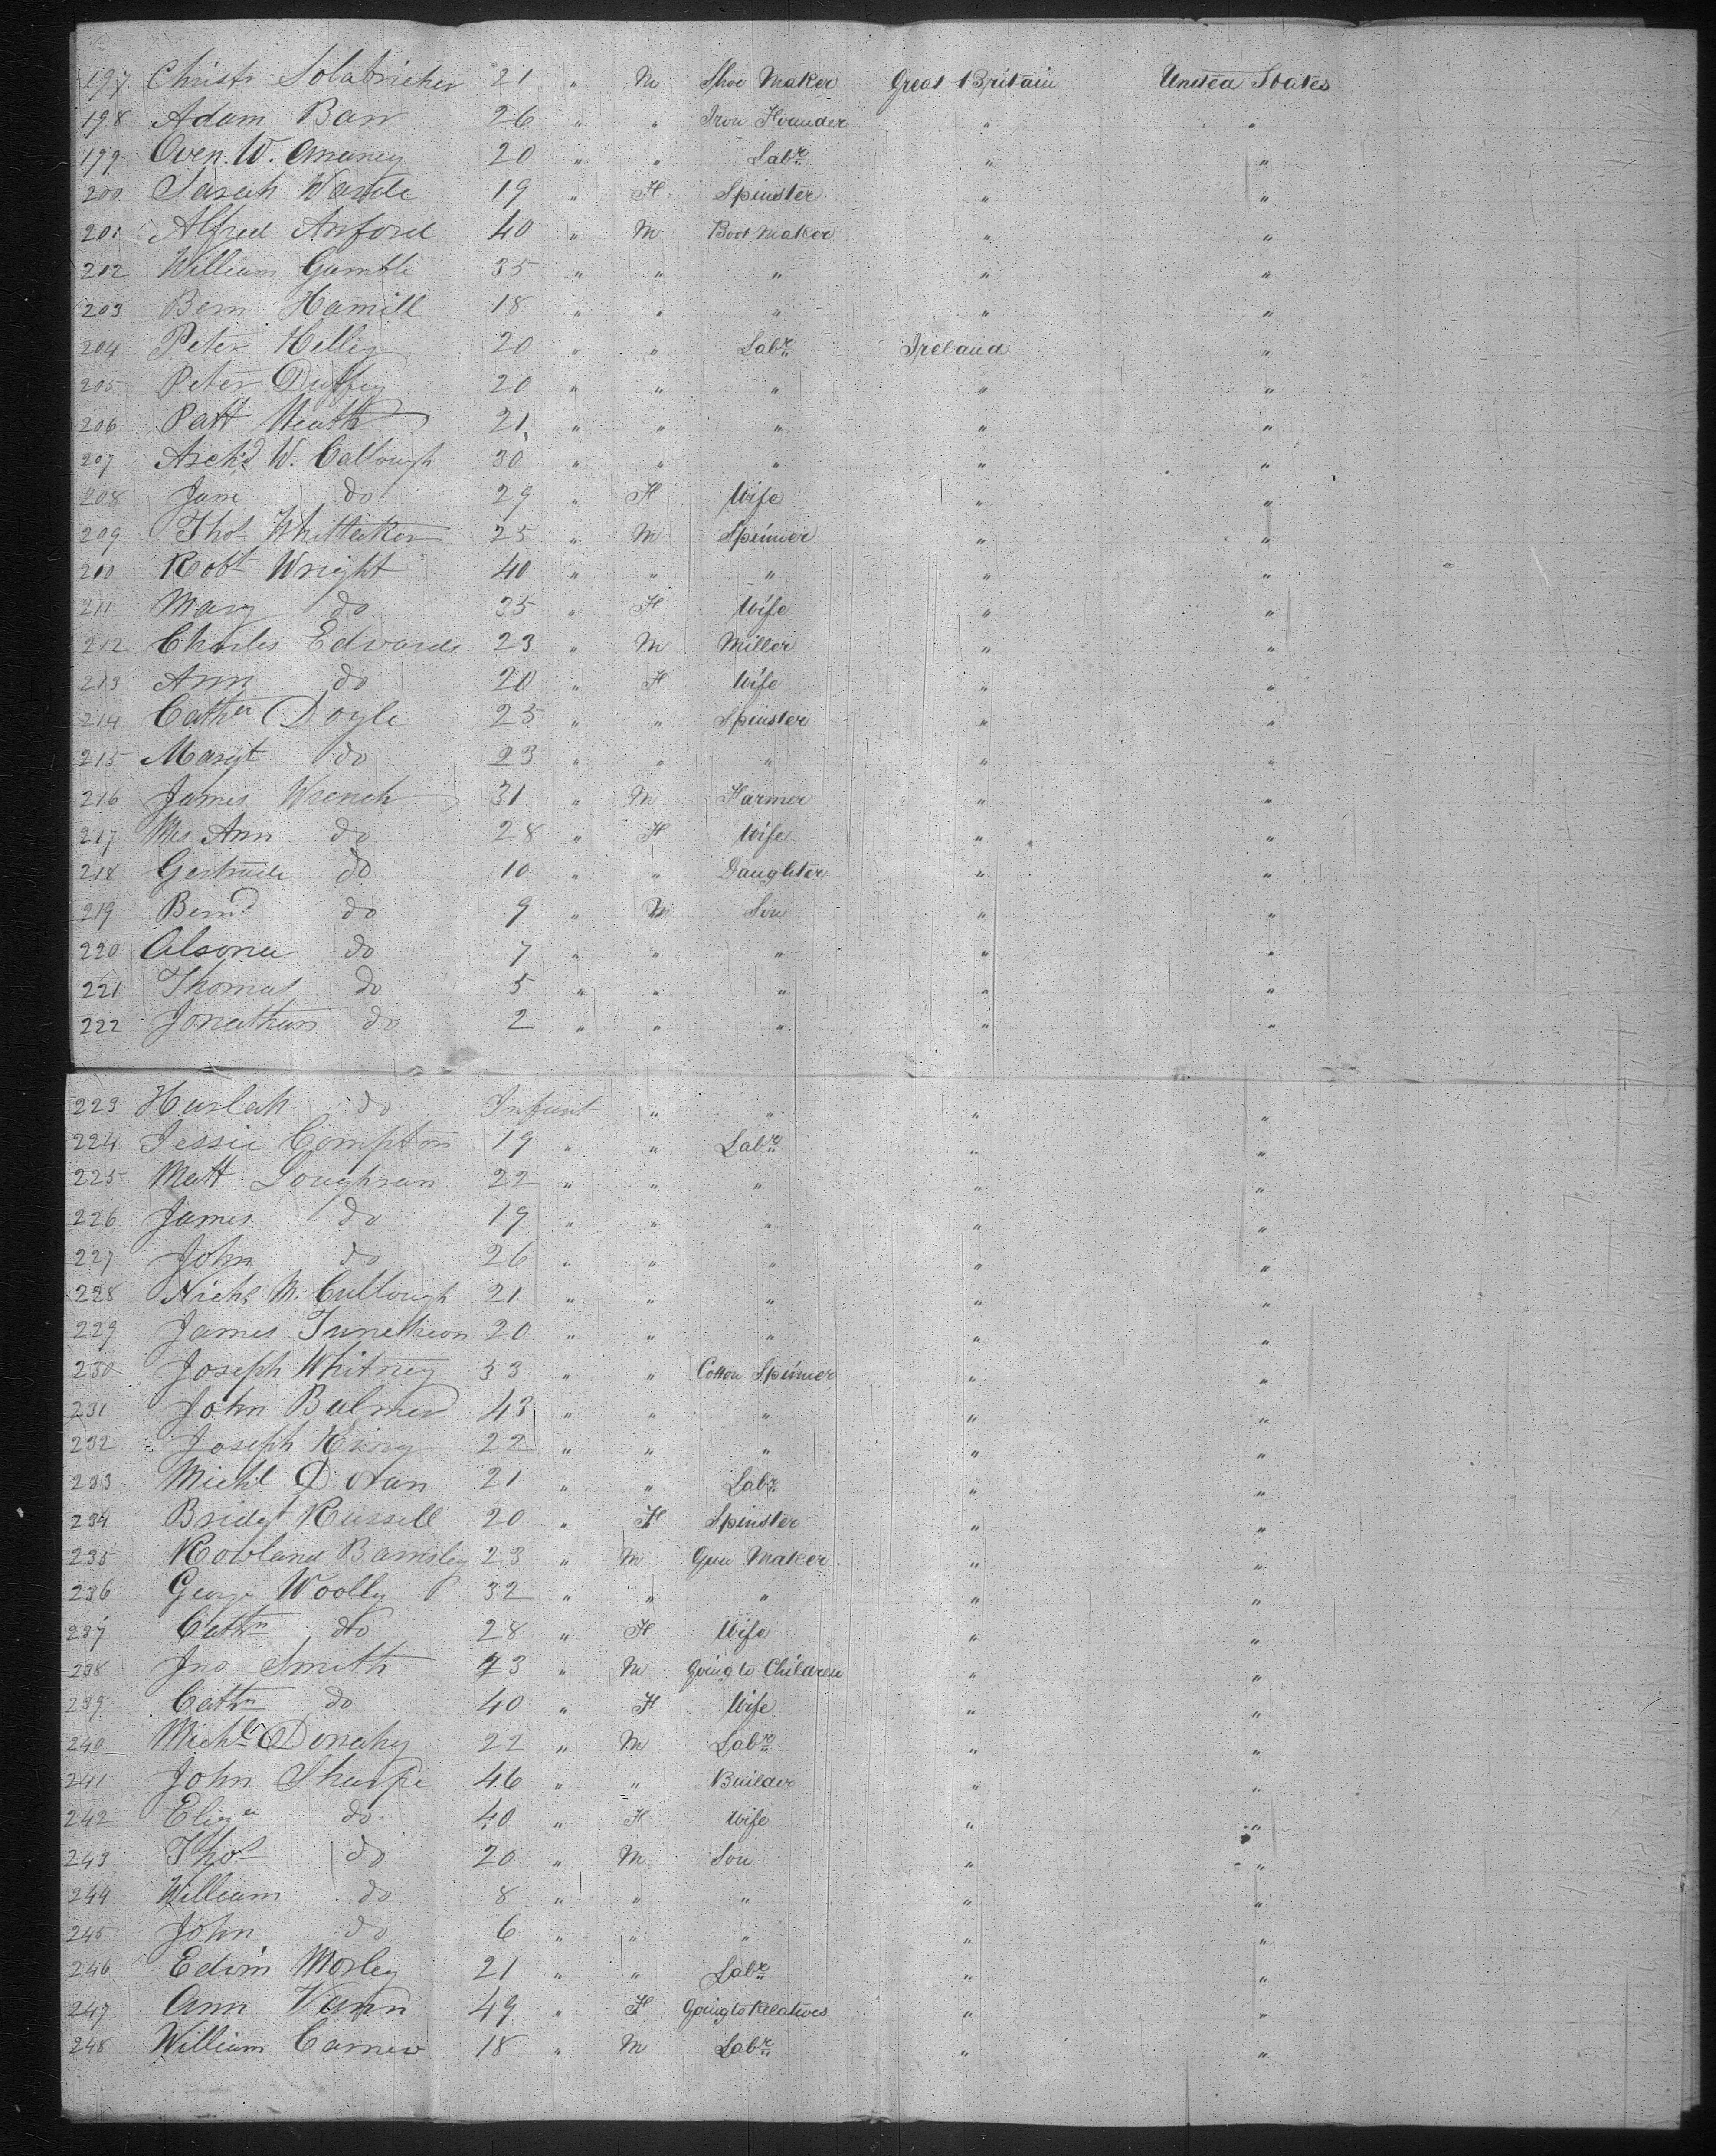 197 Christr Solabricker 21 " M Shoe Maker Great Britain United States
198 Adam Barr 26 " " Iron Founder " "
199 Owen W. Aneaney 20 " " Labr " "
200 Sarah Warde 19 " F Spinster " "
201 Alfred Axford 40 " M Boot Maker " "
202 William Gamble 35 " " " " "
203 Bern Hamill 18 " " " " "
204 Peter Kelley 20 " " Labr Ireland "
205 Peter Duffey 20 " " " " "
206 Patt Heath 21 " " " " "
207 Archd W. Callough 30 " " " " "
208 Jane do 29 " F Wife " "
209 Thos Whittaker 25 " M Spinner " "
210 Robt Wright 40 " " " " "
211 Mary do 35 " F Wife " "
212 Charles Edwards 23 " M Miller " "
213 Ann do 20 " F Wife " "
214 Cathn Doyle 25 " " Spinster " "
215 Margt do 23 " " " " "
216 James Wrench 31 " M Farmer " "
217 Mrs Ann do 28 " F Wife " "
218 Gertrude do 10 " " Daughter " "
219 Bernd do 9 " M Son " "
220 Alsona do 7 " " " " "
221 Thomas do 5 " " " " "
222 Jonathan do 2 " " " " "
223 Harlah do Infant " " " "
224 Jessie Compton 19 " " Labr " "
225 Matt Loughran 22 " " " " "
226 James do 19 " " " " "
227 John do 26 " " " " "
228 Nichs M. Cullough 21 " " " " "
229 James Junetheon 20 " " " " "
230 Joseph Whitney 33 " " Cotton Spinner " "
231 John Bulmer 43 " " " " "
232 Joseph King 22 " " " " "
233 Michl Doran 21 " " Labr " "
234 Bridgt Russell 20 " F Spinster " "
235 Rowland Barnsley 23 " M Gun Maker " "
236 George Woolly 32 " " " " "
237 Cathn do 28 " F Wife " "
238 Jno Smith 73 " M Going to Children " "
239 Cathn do 40 " F Wife " "
240 Michl Donahy 22 " M Labr " "
241 John Sharpe 46 " " Builder " "
242 Eliza do 40 " F Wife " "
243 Thos do 20 " M Son " "
244 William do 8 " " " " "
245 John do 6 " " " " "
246 Edwin Morley 21 " " Labr " "
247 Ann Vann 49 " F Going to Relatives " "
248 William Carnew 18 " M Labr " "